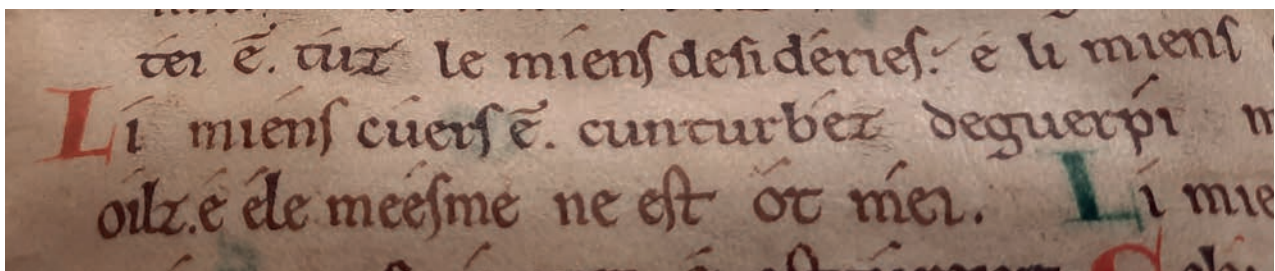 tei ē. tuz le mienſ deſidérieſ: é li mienſ
Li miénſ cúerſ ē. cunturbéz deguerpí
oilz. é éle meéſme ne eſt ót méi. Li mie